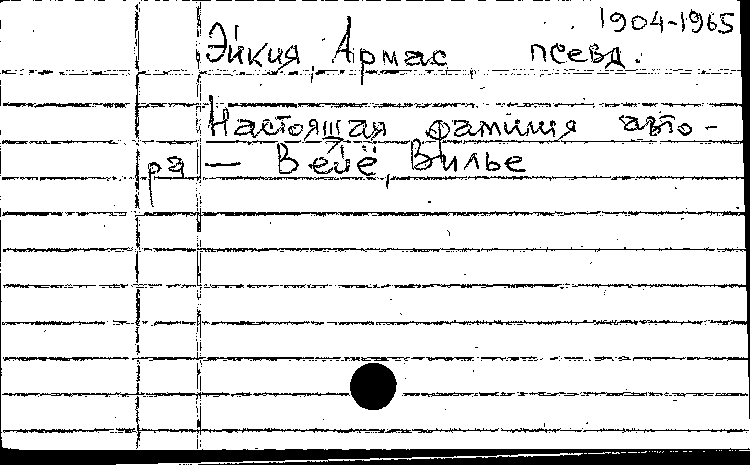 1904-1965
Эйкия, Армас, псевд.
Настоящая фамилия авто-
ра — Вейё, Вилье